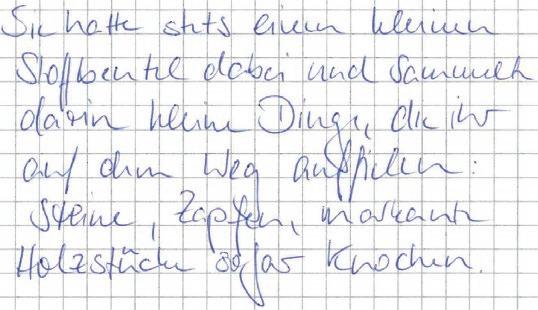 Sie hatte stets einen kleinen
Stoffbeutel dabei und sammelte
darin kleine Dinge, die ihr
auf dem Weg auffielen:
Steine, Zapfen, markante
Holzstücke sogar Knochen.